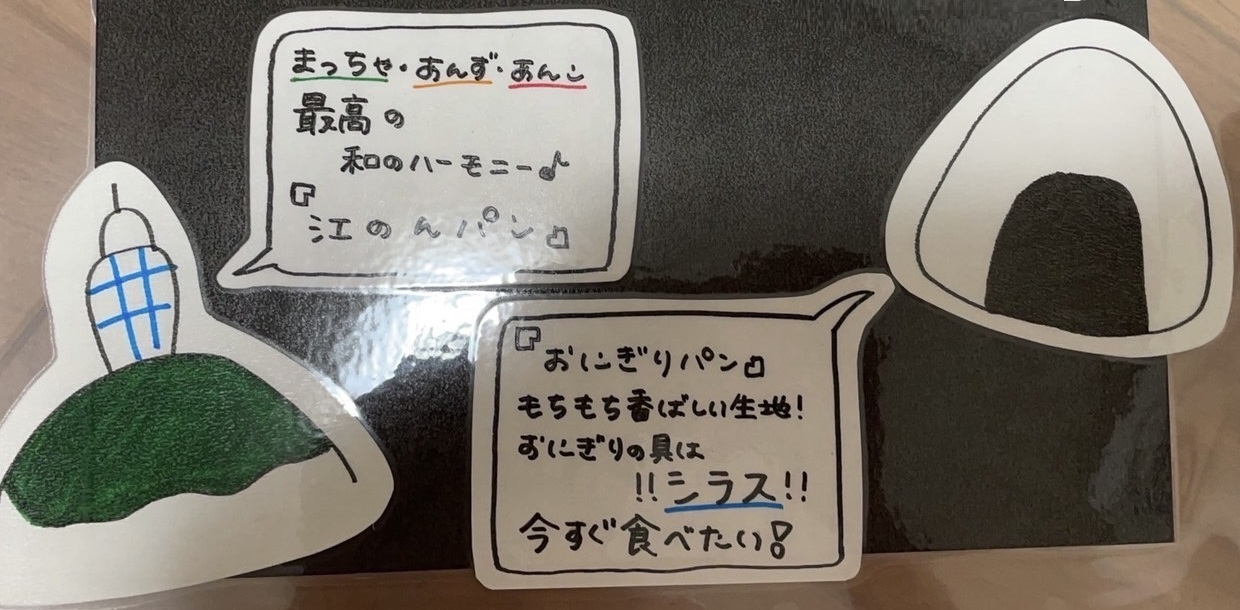 まっちゃ・あんず・あんこ
最高の
和のハーモニー♪
『江のんパン』
『おにぎりパン』
もちもち香ばしい生地!
おにぎりの具は
!!シラス!!
今すぐ食べたい!